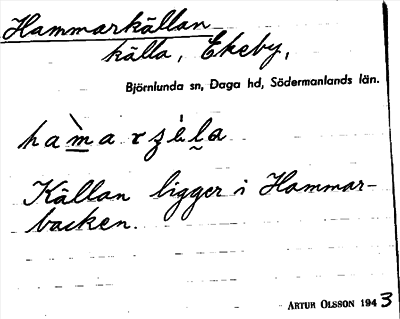 Hammarkällan
källa, Ekeby,
Björnlunda sn, Daga hd, Södermanlands län.
Källan ligger i Hammar-
backen.
ARTUR OLSSON 1943